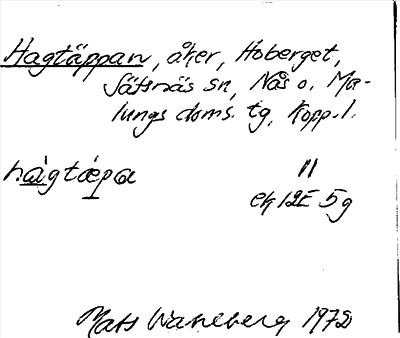 Hagtäppan, åker, Hoberget,
Säfsnäs sn, Nås o. Ma-
lungs doms. tg, Kopp. l.
hàgtǽpa 11
ek 12E 5g
Mats Wahlberg 1972